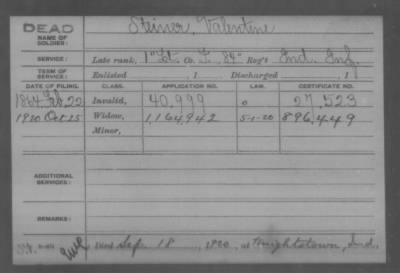 DEAD
NAME OF SOLDIER: Steiner, Valentine
SERVICE: Late rank, 1" Lt. Co. Reg't Ind. Inf.
TERM OF SERVICE: Enlisted , 1 Discharged , 1
DATE OF FILING. CLASS. APPLICATION NO. LAW. CERTIFICATE NO.
1864 Feb 22 Invalid, 40,999 o 27,523
1920 Oct 25 Widow, 1,164,942 5-1-20 896,449
Minor,
ADDITIONAL SERVICES:
REMARKS:
Died Sep. 18, 1920, at Knightstown, Ind.